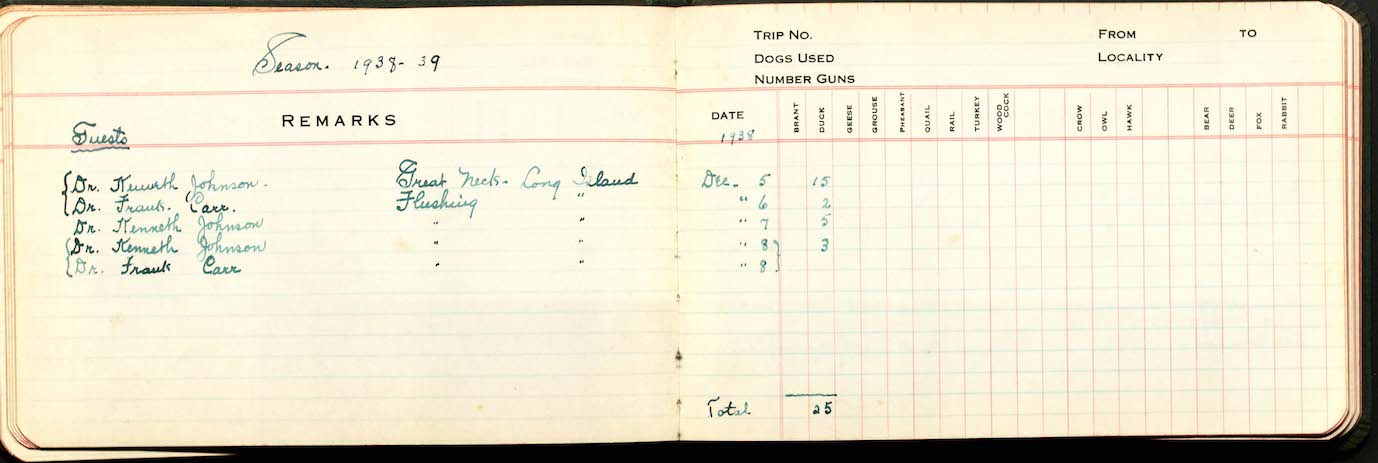 Season. 1938-39
REMARKS
Guests
Dr. Kenneth Johnson. Great Neck- Long Island
Dr. Frank. Carr. Flushing "
Dr. Kenneth Johnson " "
Dr. Kenneth Johnson " "
Dr. Frank Carr " "
TRIP NO. FROM TO
DOGS USED LOCALITY
NUMBER GUNS
DATE BRANT DUCK GEESE GROUSE PHEASANT QUAIL RAIL TURKEY WOOD COCK CROW OWL HAWK BEAR DEER FOX RABBIT
1938
Dec. 5 15
" 6 2
" 7 5
" 8 3
" 8
Total 25